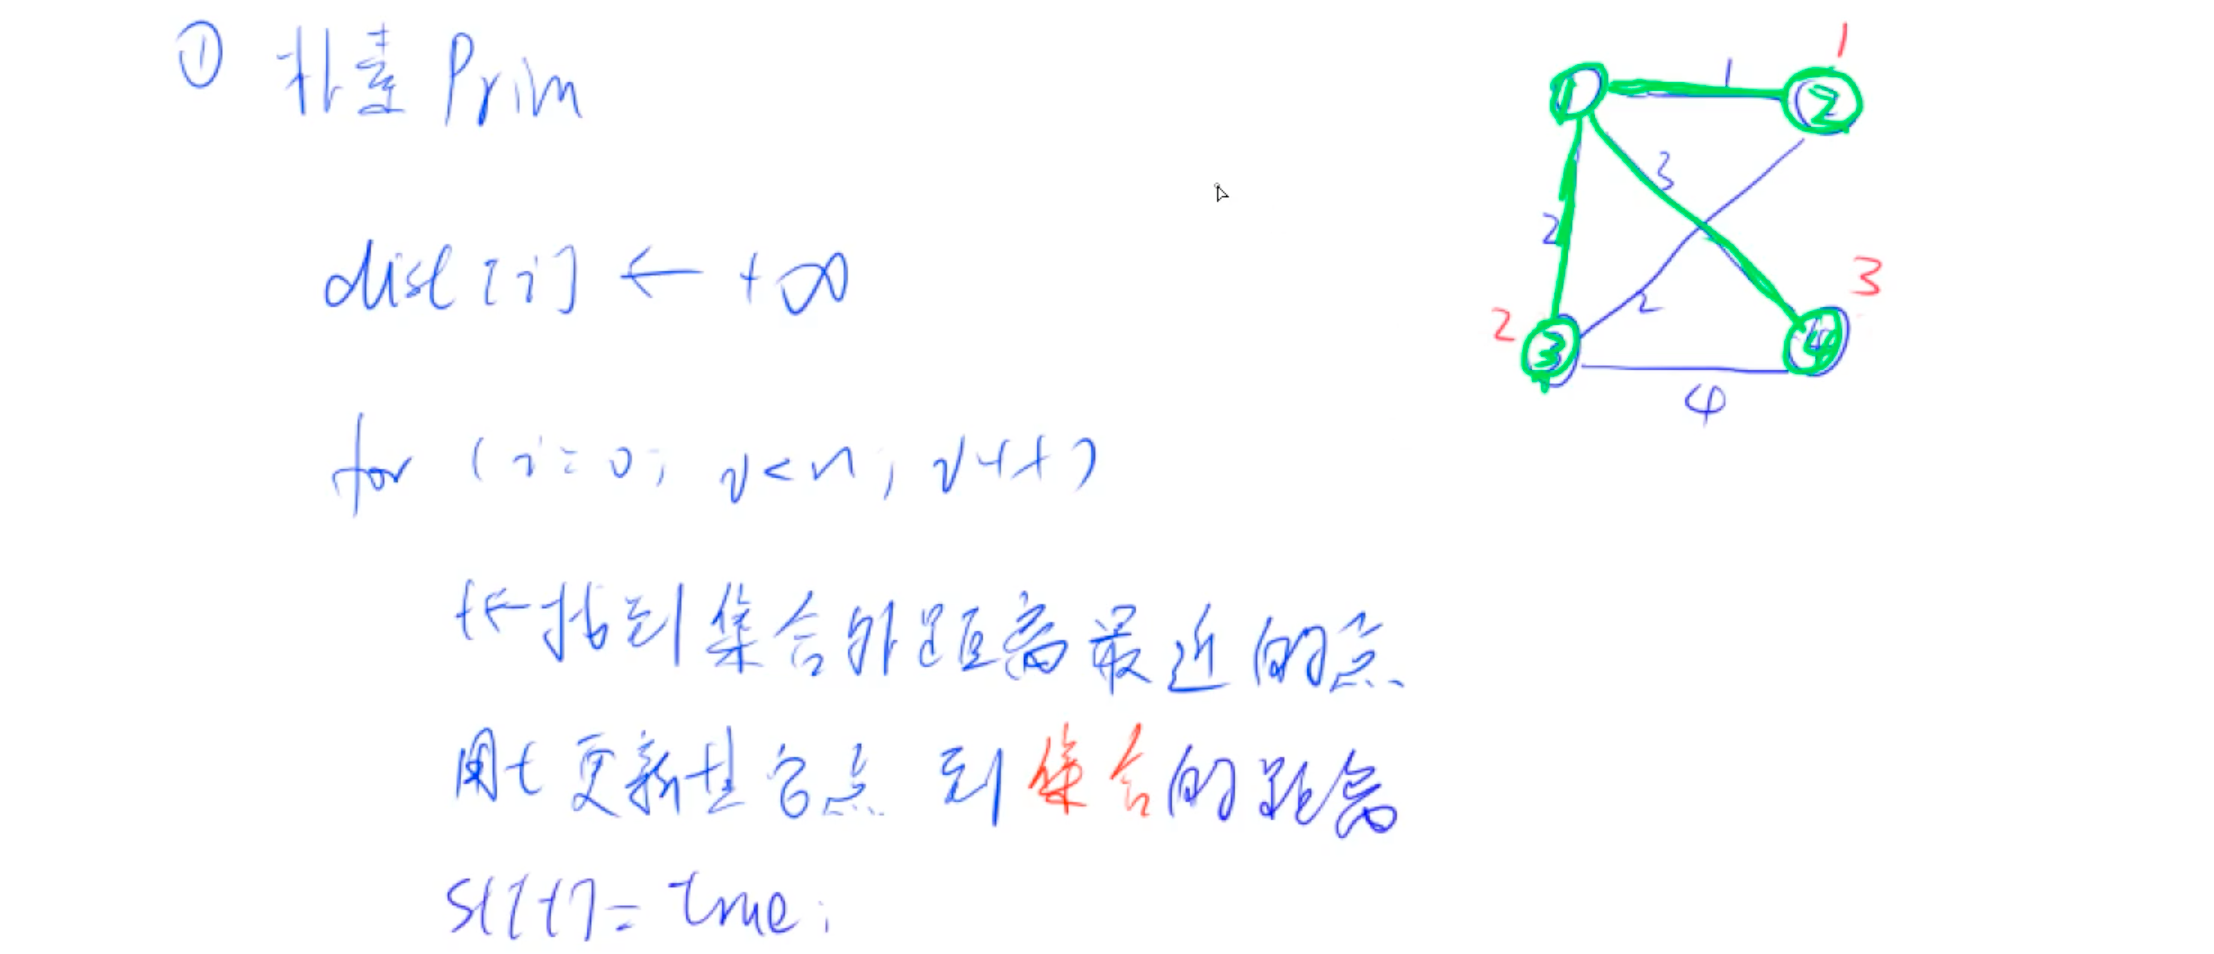 ① 朴素 Prim
dist[i] ← +∞
for (i=0; i<n; i++)
t←找到集合外距离最近的点
用t更新其它点 到集合的距离
st[t]=true;
1
1
1
2
3
2
2
3
2
3
4
4